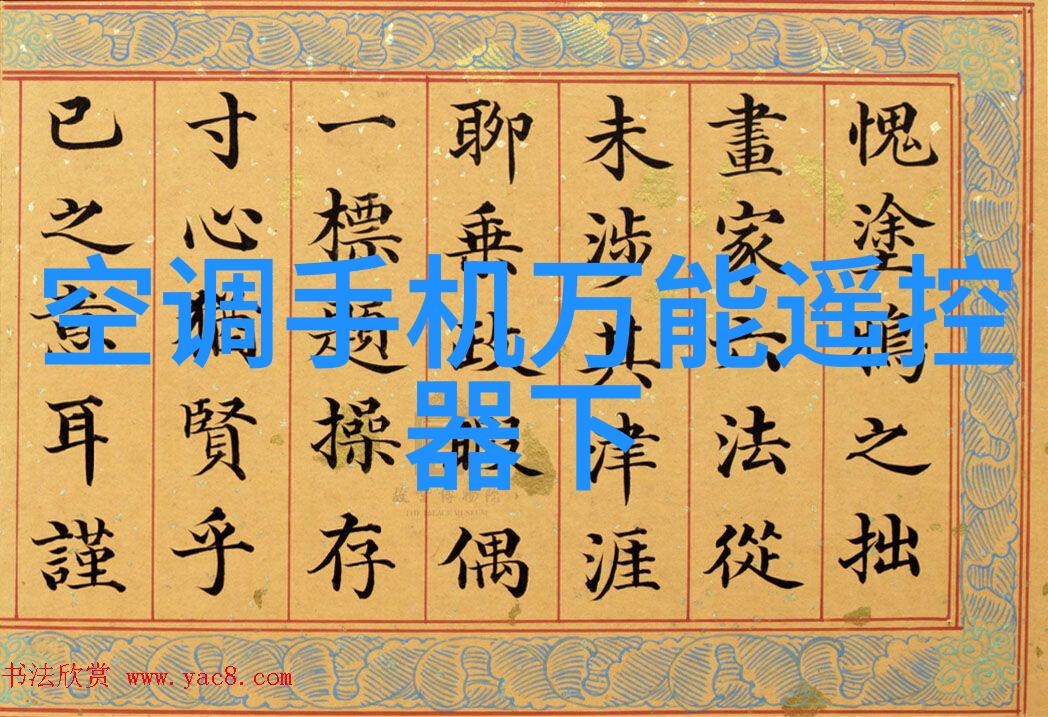 愧塗鴉之拙
畫家六法從
未涉其津涯
聊垂政暇偶
一標題操存
寸心猶賢乎
已之意耳謹
空调手机万能遥控
器下
故宮博物院
THE PALACE MUSEUM
书法欣赏 www.yac8.com